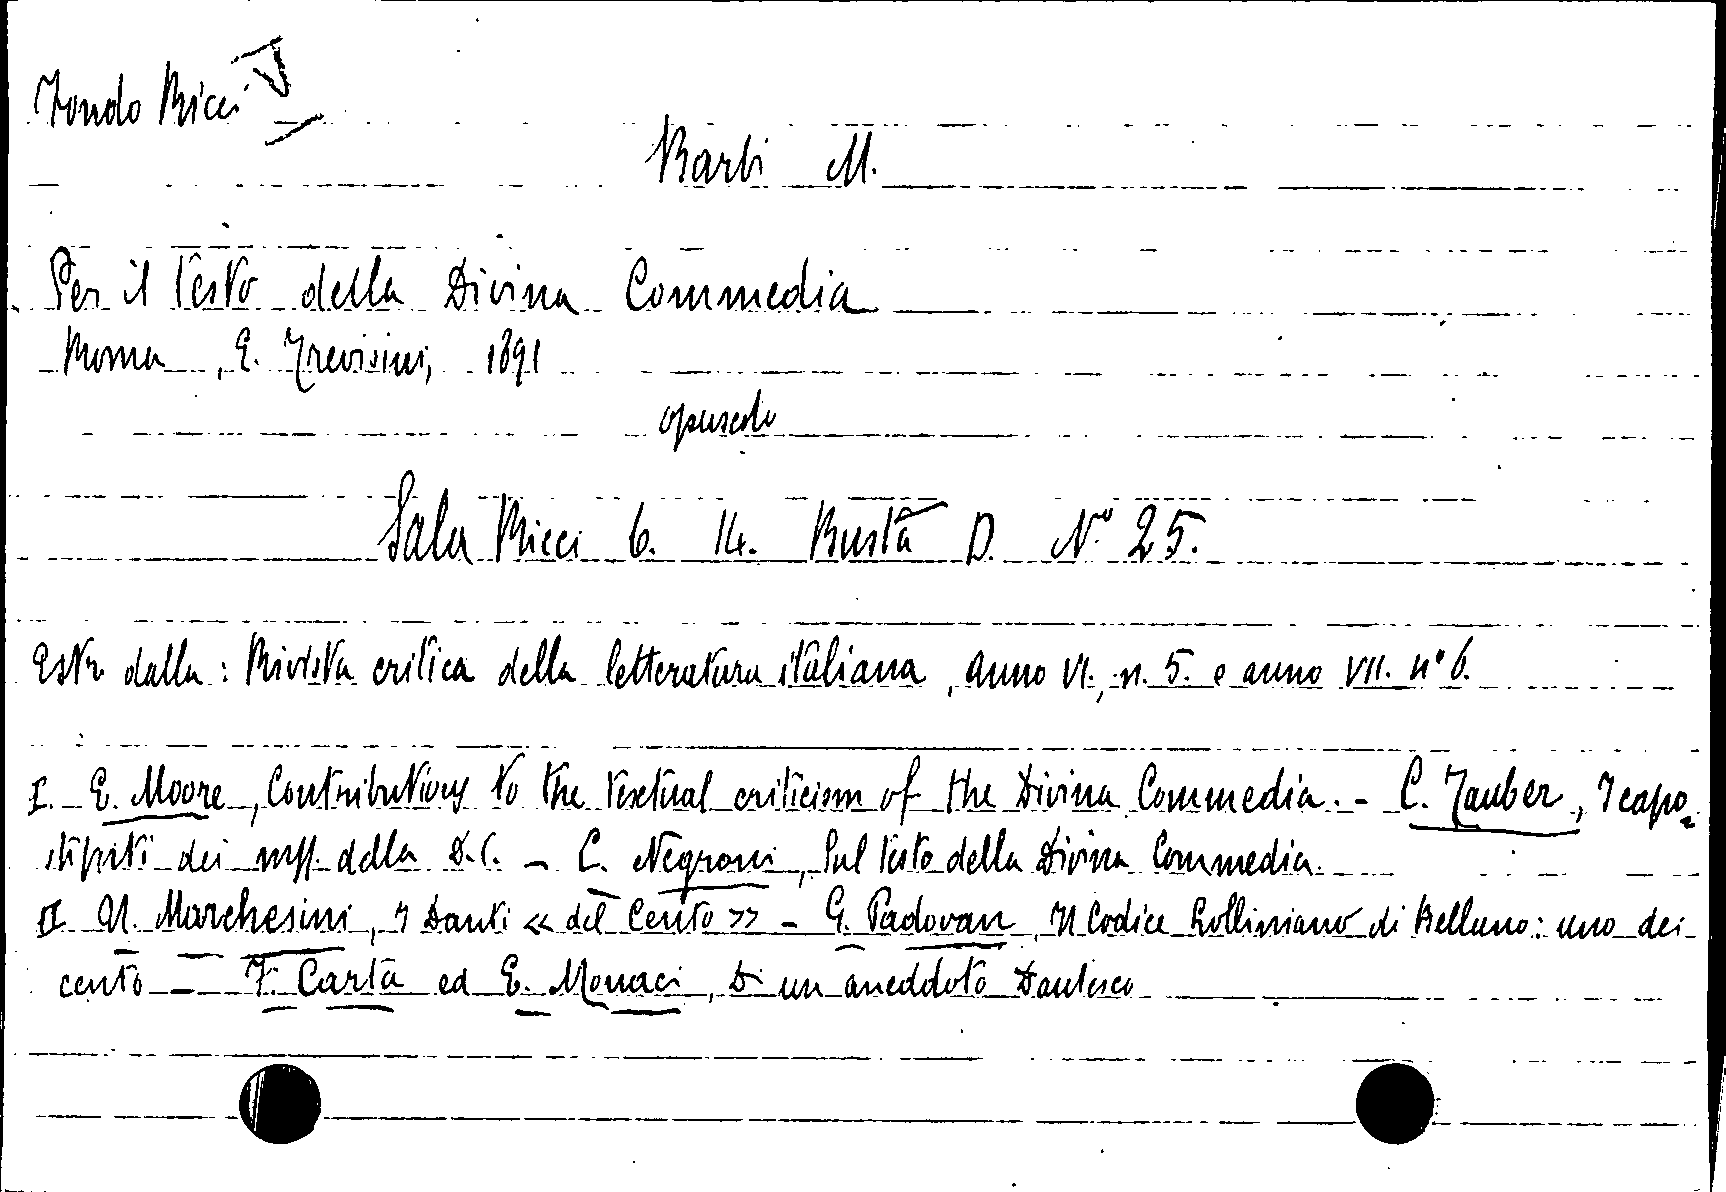 Fondo Ricci
Barbi M.
Per il testo della Divina Commedia
Roma, E. Trevisini, 1891
opuscolo
Sala Ricci 6. 14. Busta D. N° 25.
Estr. dalla: Rivista critica della letteratura italiana, anno VI., n. 5. e anno VII. n° 6.
I. E. Moore, Contributions to the textual criticism of the Divina Commedia. - C. Täuber, I capo=
stipiti dei mss. della D.C. - C. Negroni, Sul testo della Divina Commedia.
II. U. Marchesini, I Danti « del Cento » - G. Padovan, Il Codice Lolliniano di Belluno: uno dei
cento - F. Carta ed E. Monaci, Di un aneddoto Dantesco